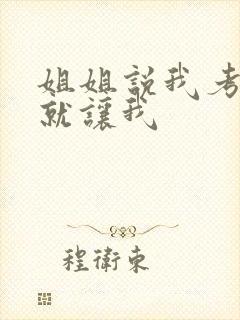 姐姐説我考
就讓我
程衛東